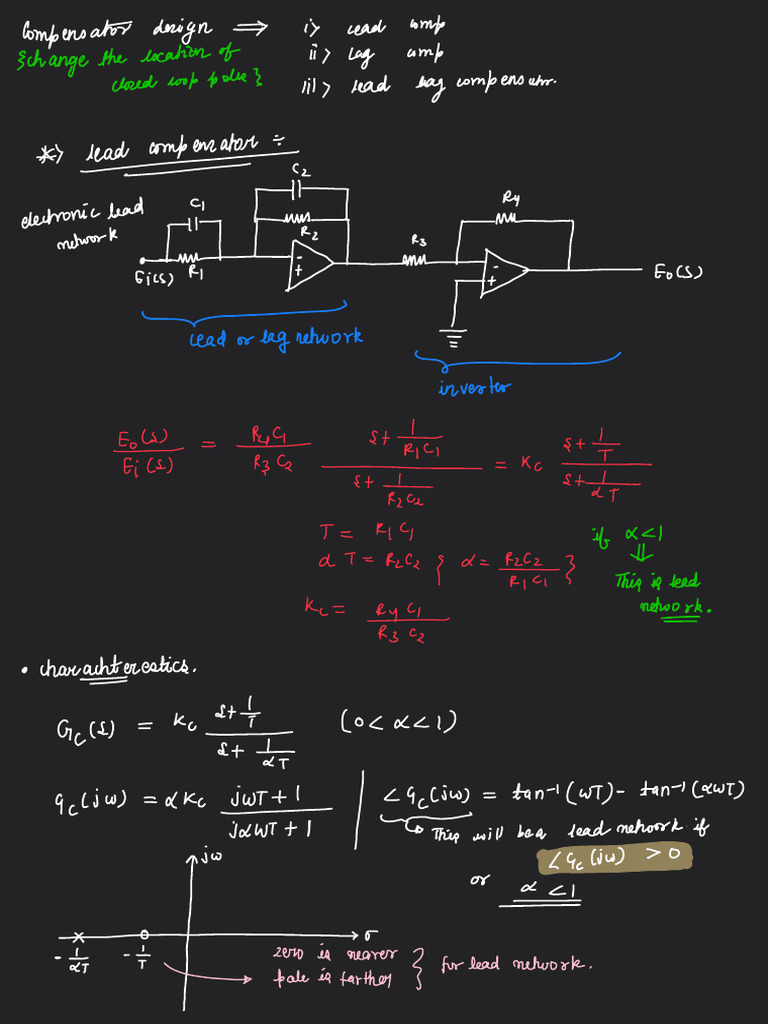 Compensator design ⟹ i) Lead comp
{change the location of ii) Lag comp
closed loop pole} iii) Lead lag compensator.
*) Lead compensator ÷
electronic lead
network
C1
R1
Ei(s)
C2
R2
-
+
R3
R4
-
+
Eo(s)
Lead or lag network
inverter
Eo(s)/Ei(s) = R4C1/R3C2 (s + 1/R1C1)/(s + 1/R2C2) = Kc (s + 1/T)/(s + 1/αT)
T = R1C1
αT = R2C2 {α = R2C2/R1C1}
if α<1
⇓
This is lead
network.
Kc = R4C1/R3C2
• charachterestics.
Gc(s) = Kc (s + 1/T)/(s + 1/αT) (0 < α < 1)
Gc(jω) = αKc (jωT + 1)/(jαωT + 1) | ∠Gc(jω) = tan⁻¹(ωT) - tan⁻¹(αωT)
↳ This will be a lead network if
∠Gc(jω) > 0
or α < 1
jω
σ
-1/αT
-1/T
zero is nearer
pole is farther } for lead network.